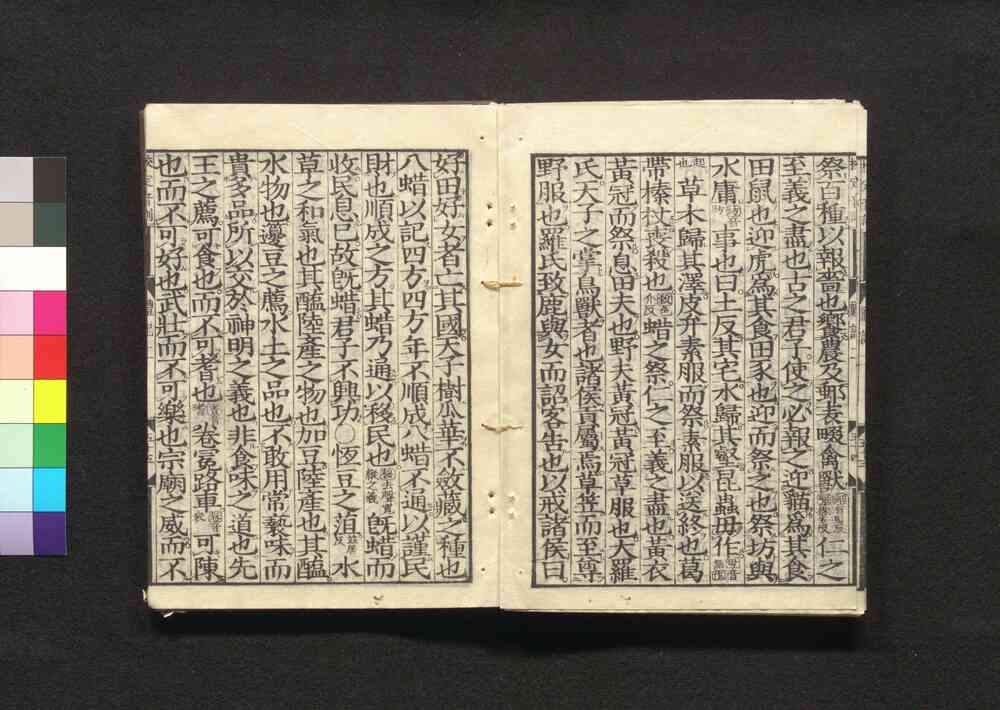 祭百種以報嗇也饗農及郵表畷禽獸仁之
至義之盡也古之君子使之必報之迎貓爲其食
田鼠也迎虎爲其食田豕也迎而祭之也祭坊與
水庸事也曰土反其宅水歸其壑昆蟲毋作
草木歸其澤皮弁素服而祭素服以送終也葛
帶榛杖喪殺也蜡之祭仁之至義之盡也黃衣
黃冠而祭息田夫也野夫黃冠黃冠草服也大羅
氏天子之掌鳥獸者也諸侯貢屬焉草笠而至尊
野服也羅氏致鹿與女而詔客告也以戒諸侯曰
好田好女者亡其國天子樹瓜華不斂藏之種也
八蜡以記四方四方年不順成八蜡不通以謹民
財也順成之方其蜡乃通以移民也既蜡而
收民息已故既蜡君子不興功○恆豆之菹水
草之和氣也其醢陸產之物也加豆陸產也其醢
水物也籩豆之薦水土之品也不敢用常褻味而
貴多品所以交於神明之義也非食味之道也先
王之薦可食也而不可耆也卷冕路車可陳
也而不可好也武壯而不可樂也宗廟之威而不